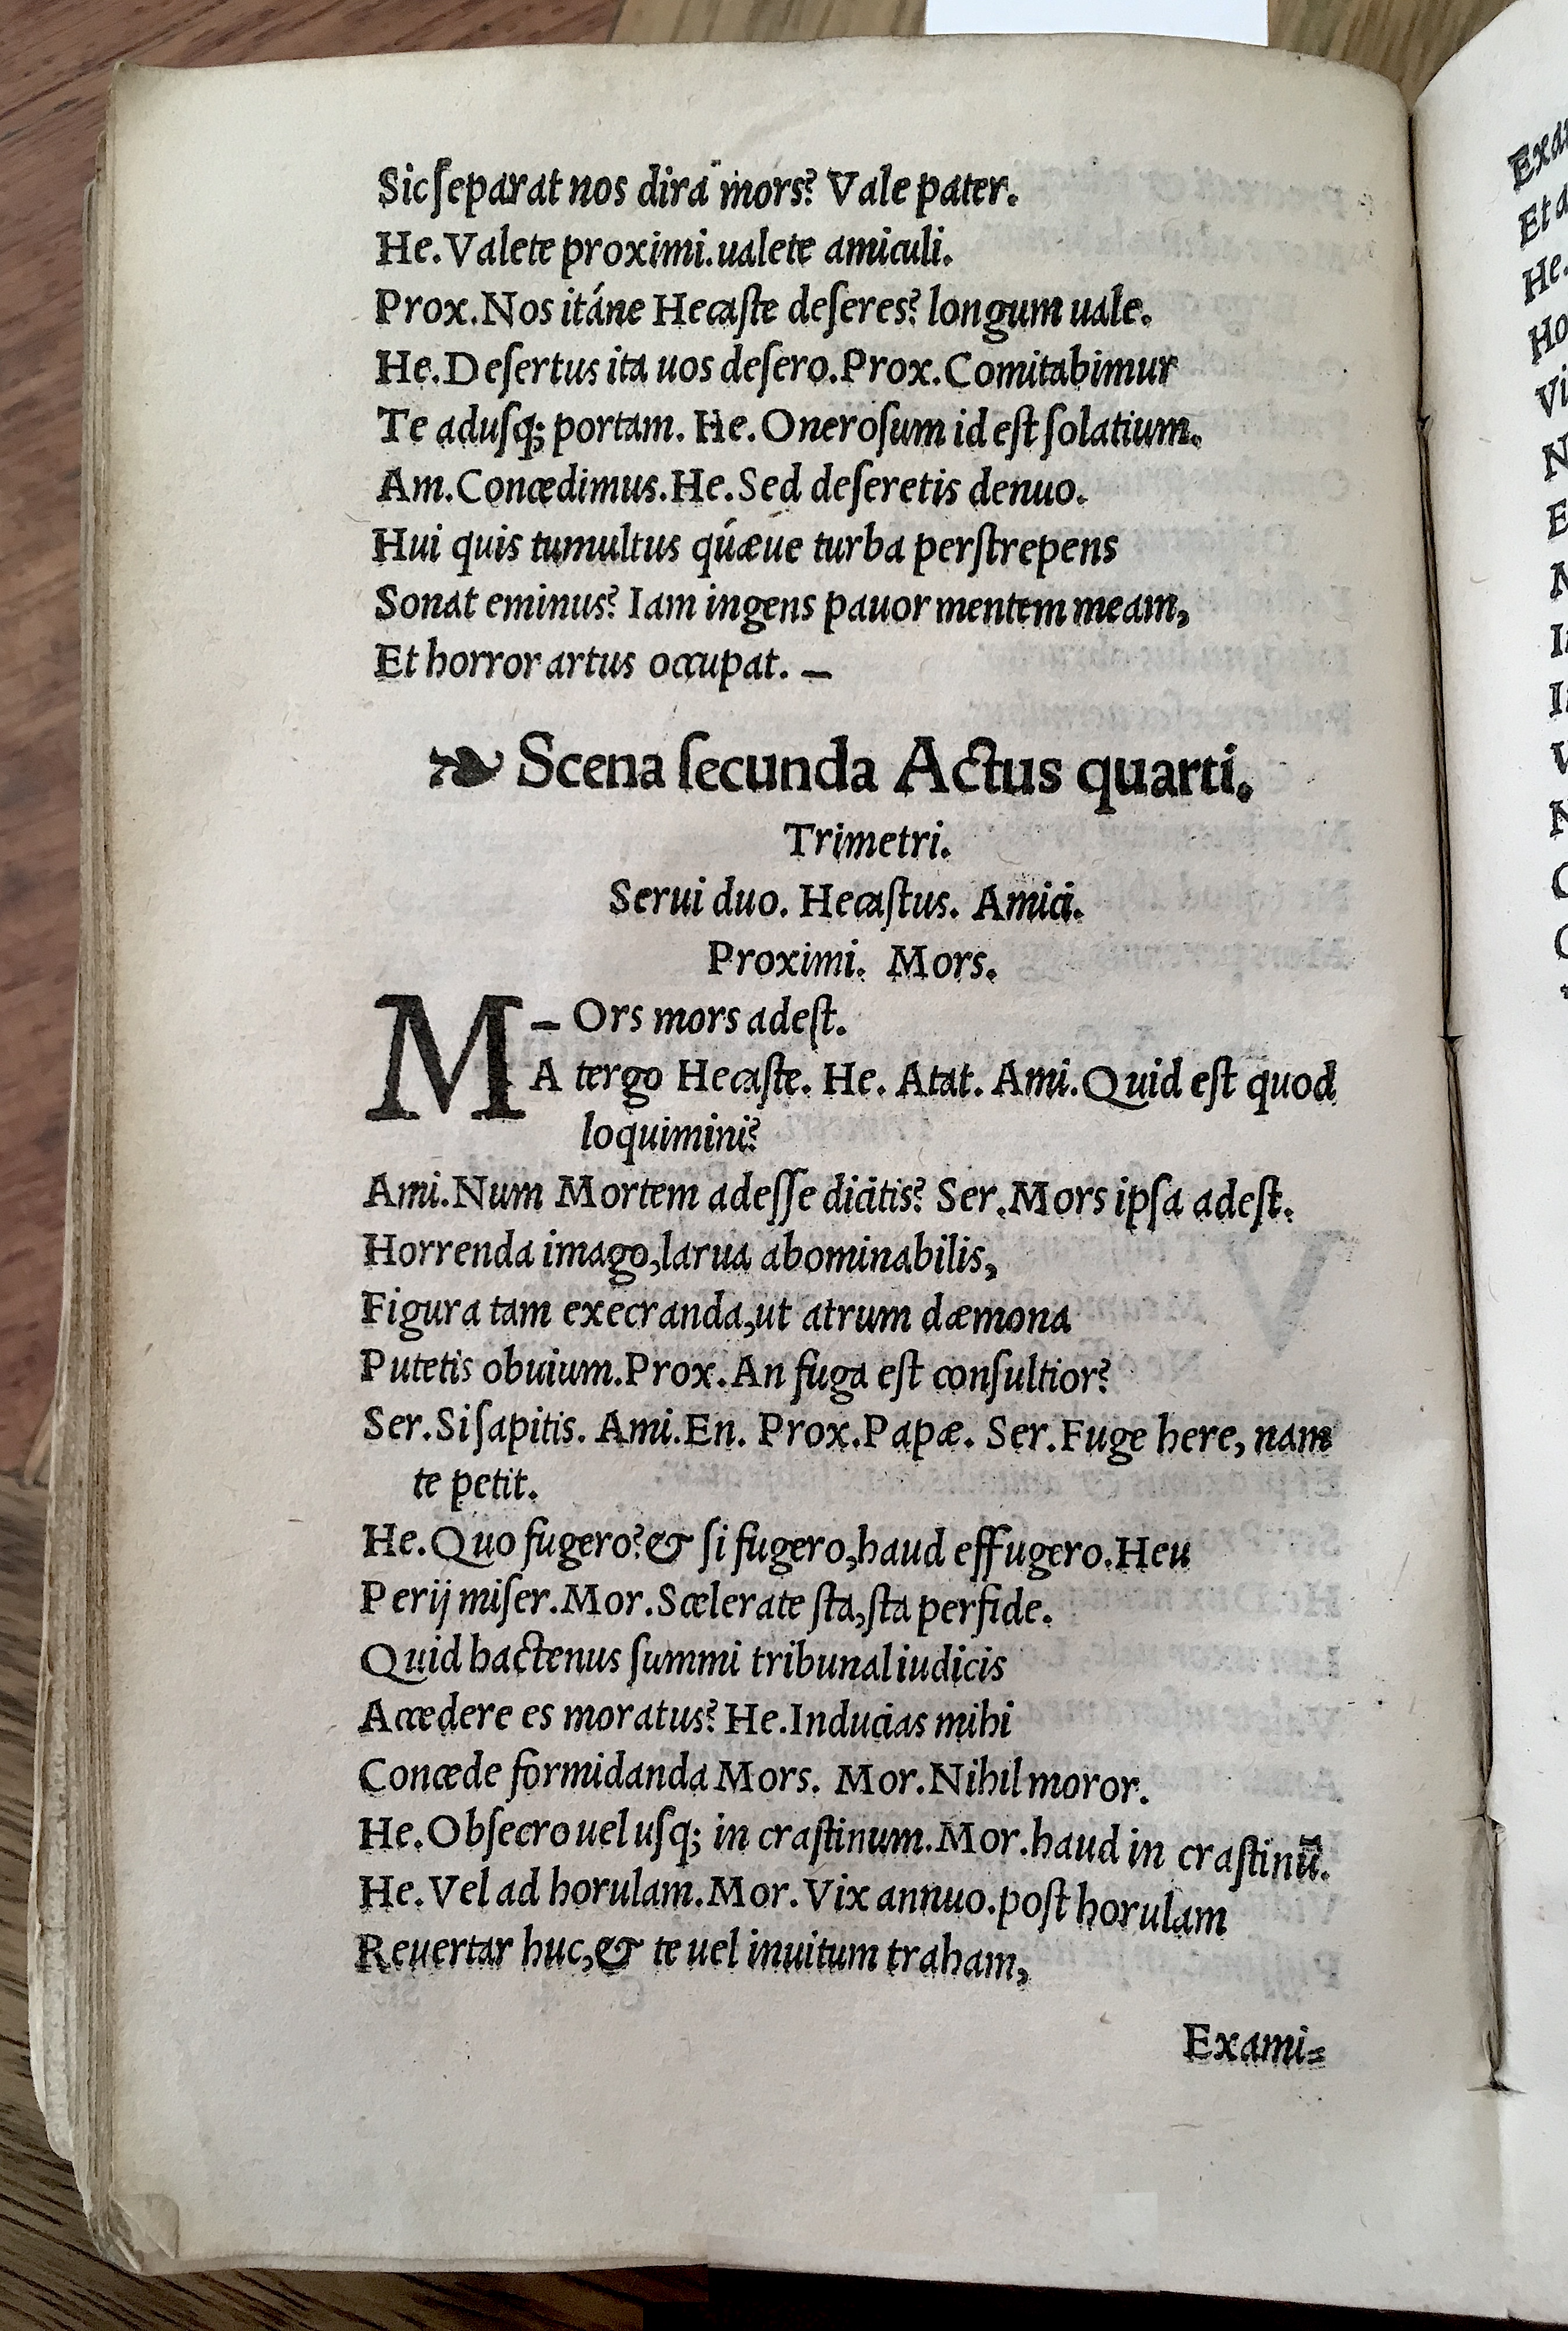 Sic ſeparat nos dira mors? Vale pater.
He. Valete proximi. ualete amiculi.
Prox. Nos itáne Hecaſte deſeres? longum uale.
He. Deſertus ita uos deſero. Prox. Comitabimur
Te aduſq; portam. He. Oneroſum id eſt ſolatium.
Am. Concedimus. He. Sed deſeretis denuo.
Hui quis tumultus quǽue turba perſtrepens
Sonat eminus? Iam ingens pauor mentem meam,
Et horror artus occupat. —
❧ Scena ſecunda Actus quarti.
Trimetri.
Serui duo. Hecaſtus. Amici.
Proximi. Mors.
M — Ors mors adeſt.
A tergo Hecaſte. He. Atat. Ami. Quid eſt quod
loquimini?
Ami. Num Mortem adeſſe dicitis? Ser. Mors ipſa adeſt.
Horrenda imago, larua abominabilis,
Figura tam execranda, ut atrum dæmona
Putetis obuium. Prox. An fuga eſt conſultior?
Ser. Si ſapitis. Ami. En. Prox. Papæ. Ser. Fuge here, nam
te petit.
He. Quo fugero? & ſi fugero, haud effugero. Heu
Perij miſer. Mor. Scelerate ſta, ſta perfide.
Quid hactenus ſummi tribunal iudicis
Accedere es moratus? He. Inducias mihi
Concede formidanda Mors. Mor. Nihil moror.
He. Obſecro uel uſq; in craſtinum. Mor. haud in craſtinū.
He. Vel ad horulam. Mor. Vix annuo. poſt horulam
Reuertar huc, & te uel inuitum traham,
Exami=